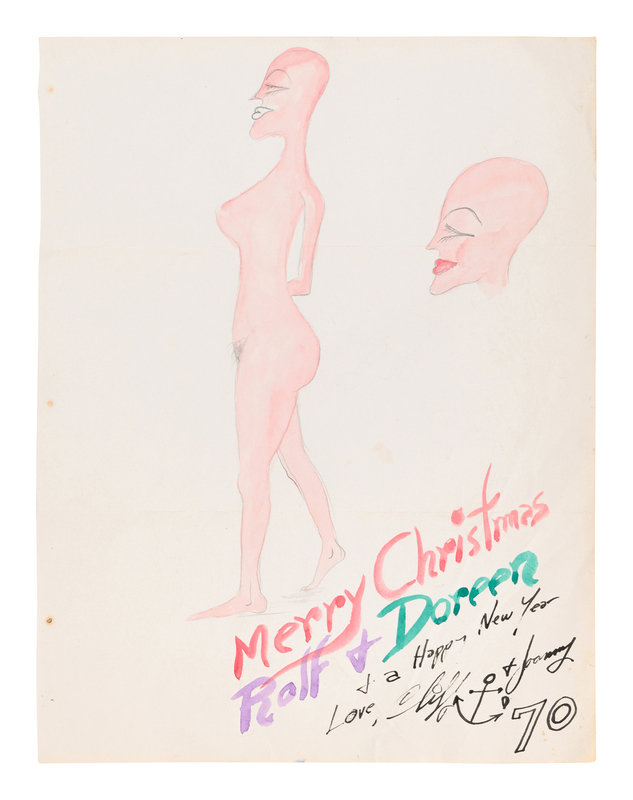 Merry Christmas
Rolf & Doreen
& a Happy New Year
Love, Cliff &
70